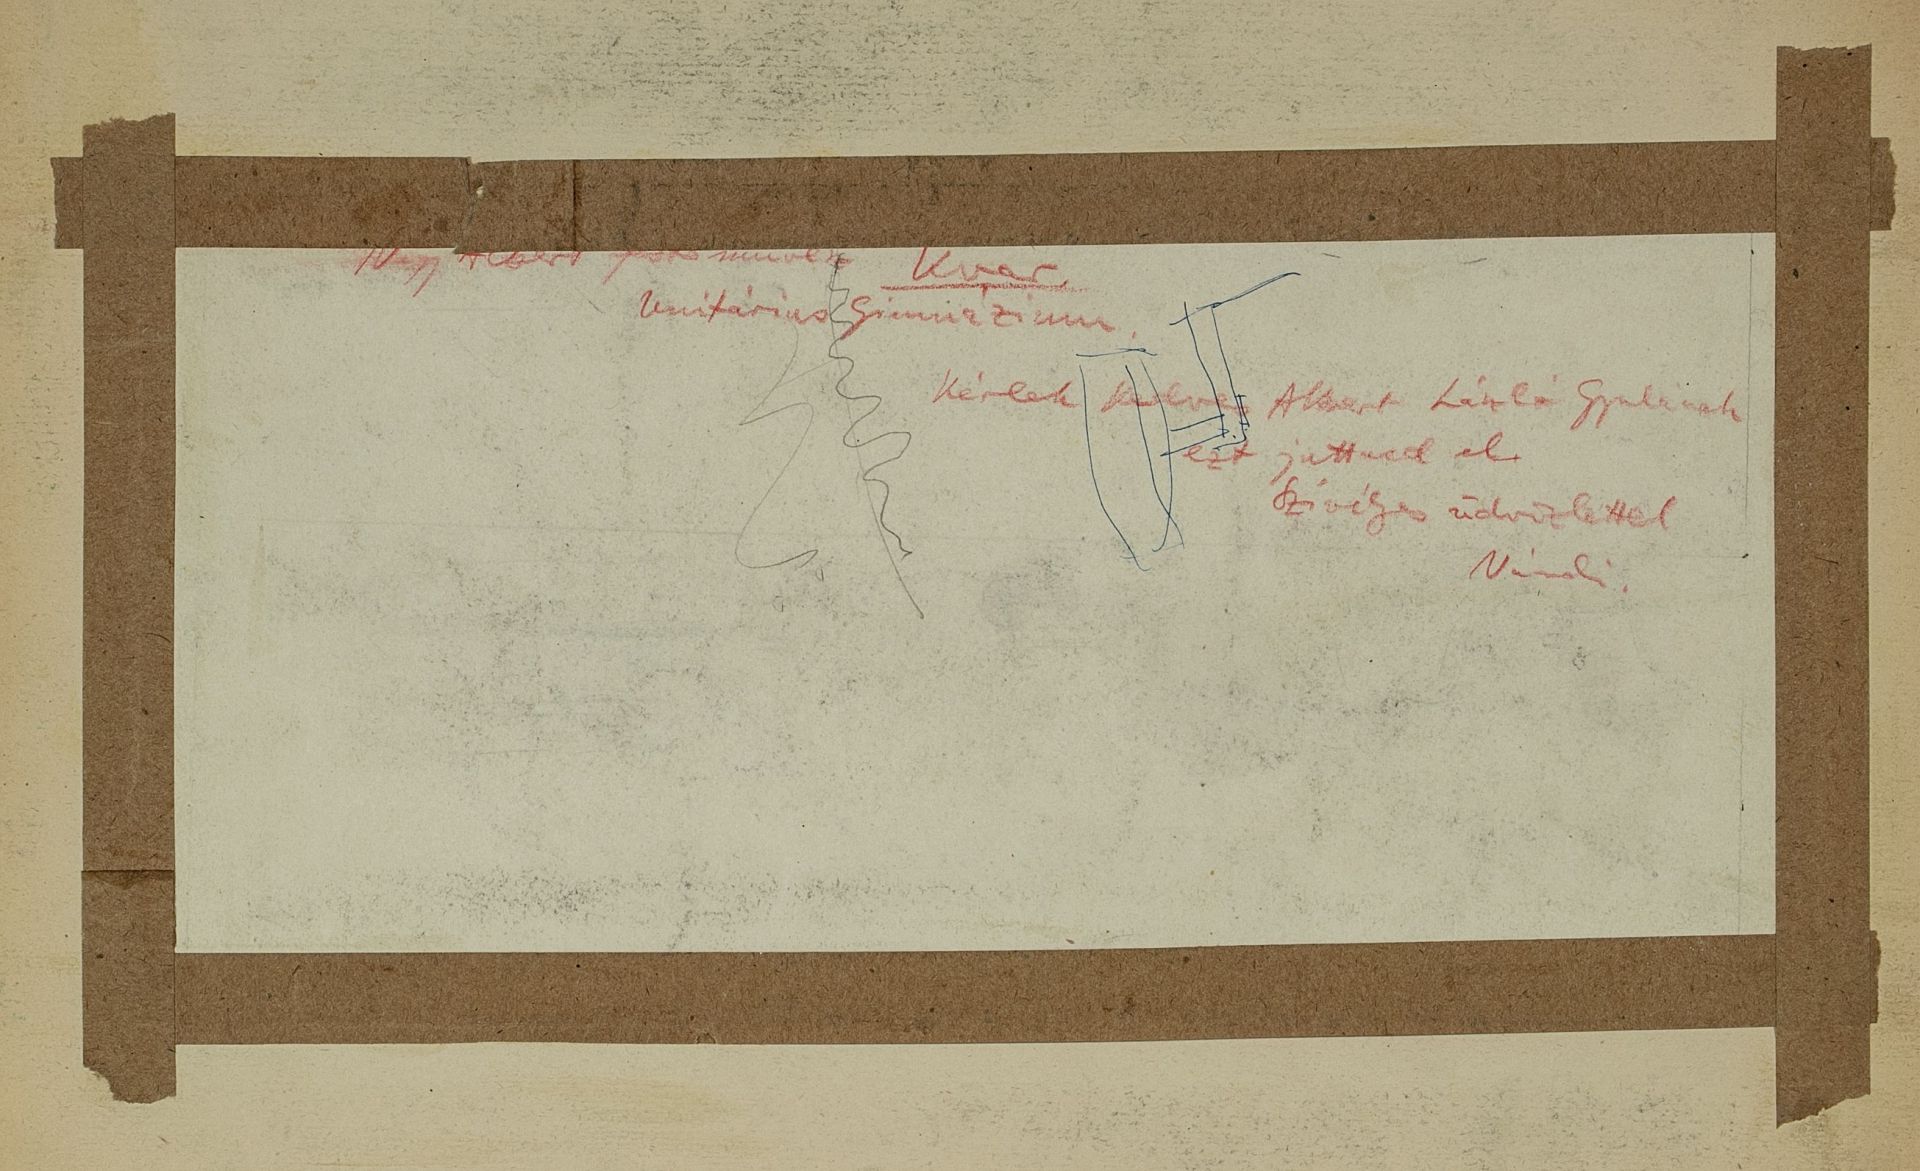 Nagy Albert festőművész Kvár
Unitárius Gimnázium.
Kérlek kedves Albert László Gyulának
ezt juttasd el
Szívélyes üdvözlettel
Nándi.